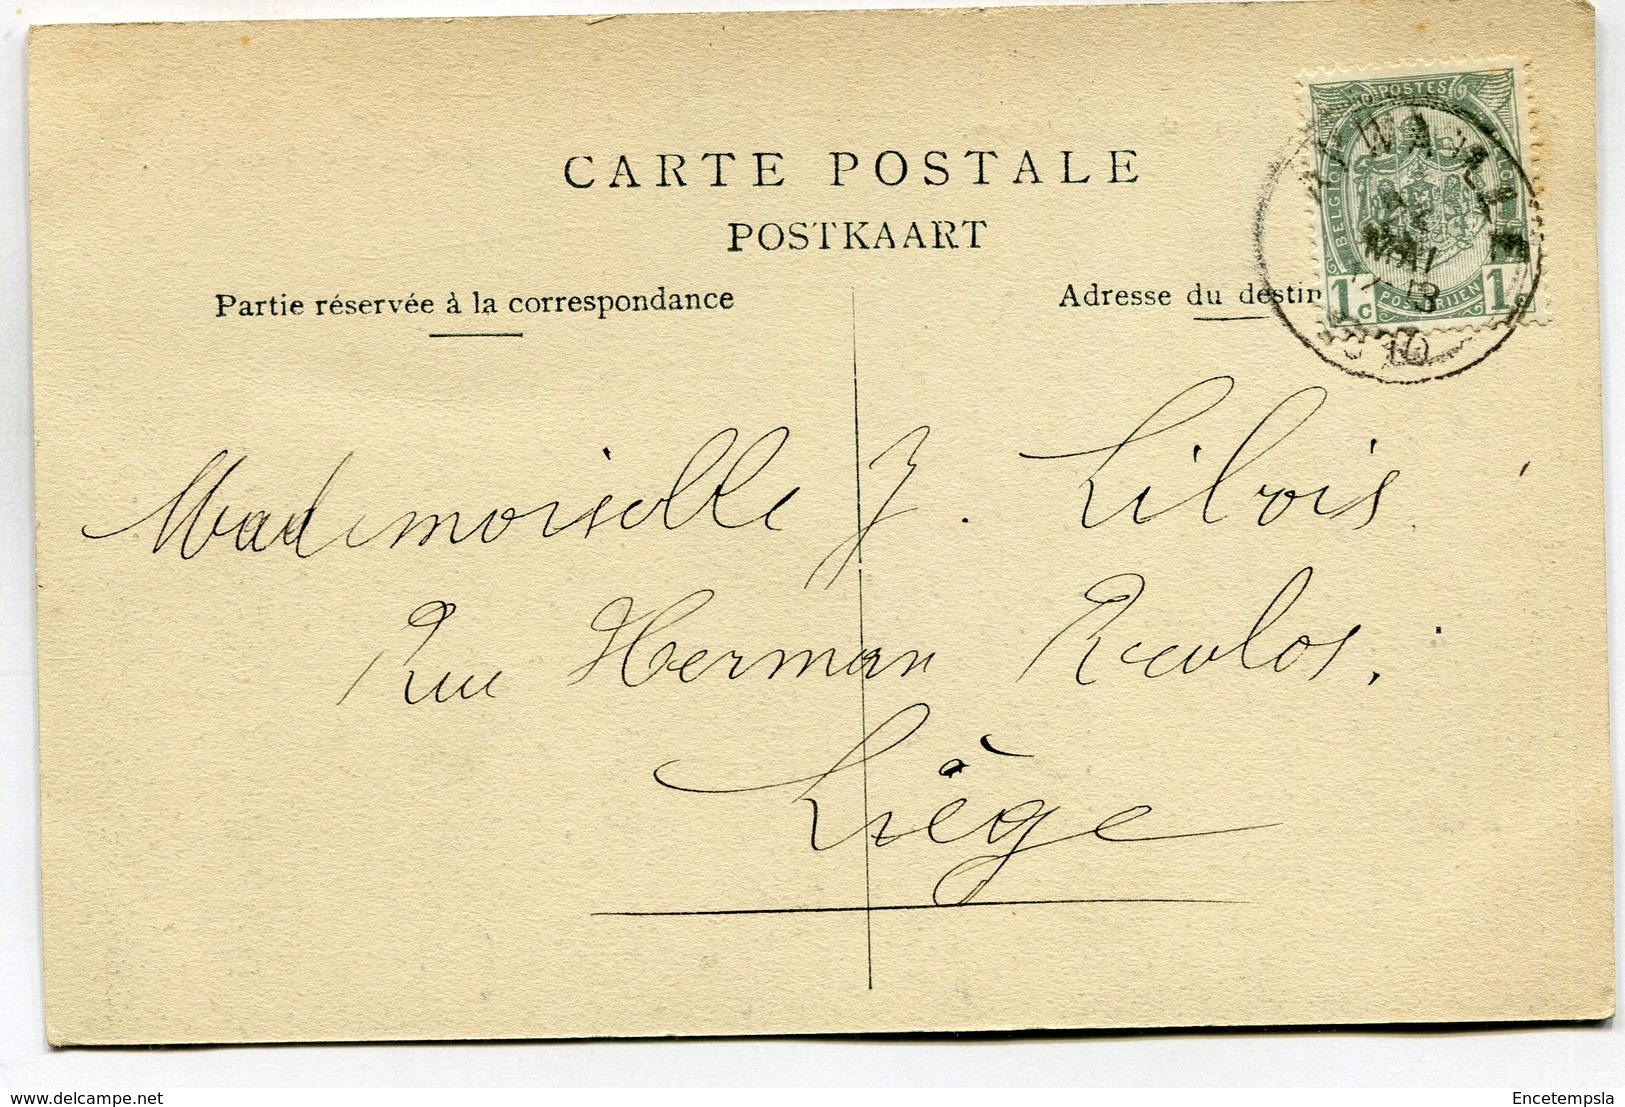 CARTE POSTALE
POSTKAART
Partie réservée à la correspondance
Adresse du destin
POSTES
BELGIQUE
POSTERIJEN
1c 1c
AYWAILLE
MAI
10
Mademoiselle J. Lilois
Rue Herman Reculos.
Liège
delcampe.net
Encetempsla